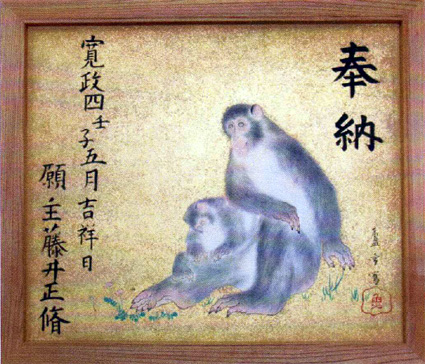 奉納
寛政四壬子五月吉祥日
願主藤井正脩